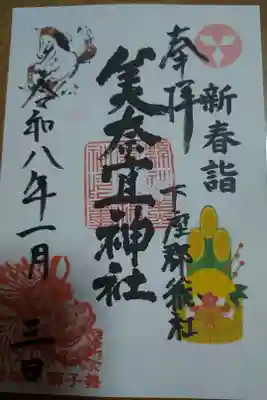 奉拝
新春詣
下座郡総社
美奈宜神社
令和八年一月三日
獅子舞